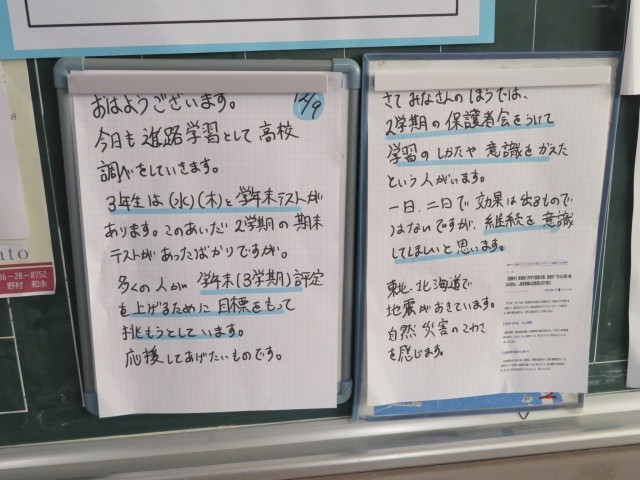 おはようございます。
12/9
今日も進路学習として高校
調べをしていきます。
3年生は(水)(木)と学年末テストが
あります。このあいだ2学期の期末
テストがあったばかりですが、
多くの人が学年末(3学期)評定
を上げるために目標をもって
挑もうとしています。
応援してあげたいものです。
さて みなさんのほうでは、
2学期の保護者会をうけて
学習のしかたや意識をかえた
という人がいます。
一日、二日で効果は出るもので
はないですが、継続を意識
してほしいと思います。
東北・北海道で
地震がおきています。
自然災害のこわさ
を感じます。
ato
86-28-8752
野村 和永